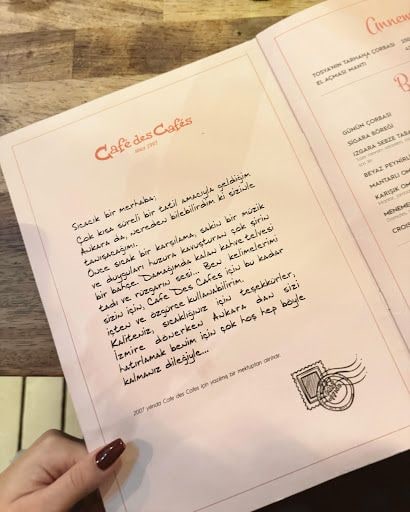 Café des Cafés
since 1997
Sıcacık bir merhaba;
Çok kısa süreli bir tatil amacıyla geldiğim
Ankara da, nereden bilebilirdim ki sizinle
tanışacağımı.
Önce sıcak bir karşılama, sakin bir müzik
ve duyguları huzura kavuşturan çok şirin
bir bahçe. Damağımda kalan kahve telvesi
tadı ve rüzgarın sesi... Ben kelimelerimi
sizin için, Cafe Des Cafes için bu kadar
içten ve özgürce kullanabilirim.
Kaliteniz, sıcaklığınız için teşekkürler,
İzmire dönerken Ankara dan sizi
hatırlamak benim için çok hoş hep böyle
kalmanız dileğiyle...
2007 yılında Cafe des Cafes için yazılmış bir mektuptan alıntıdır.
TOSYA'NIN TARHANA ÇORBASI
EL AÇMASI MANTI
GÜNÜN ÇORBASI
SİGARA BÖREĞİ
IZGARA SEBZE
BEYAZ PEYNİRLİ
MANTARLI
KARIŞIK
MENEMEN